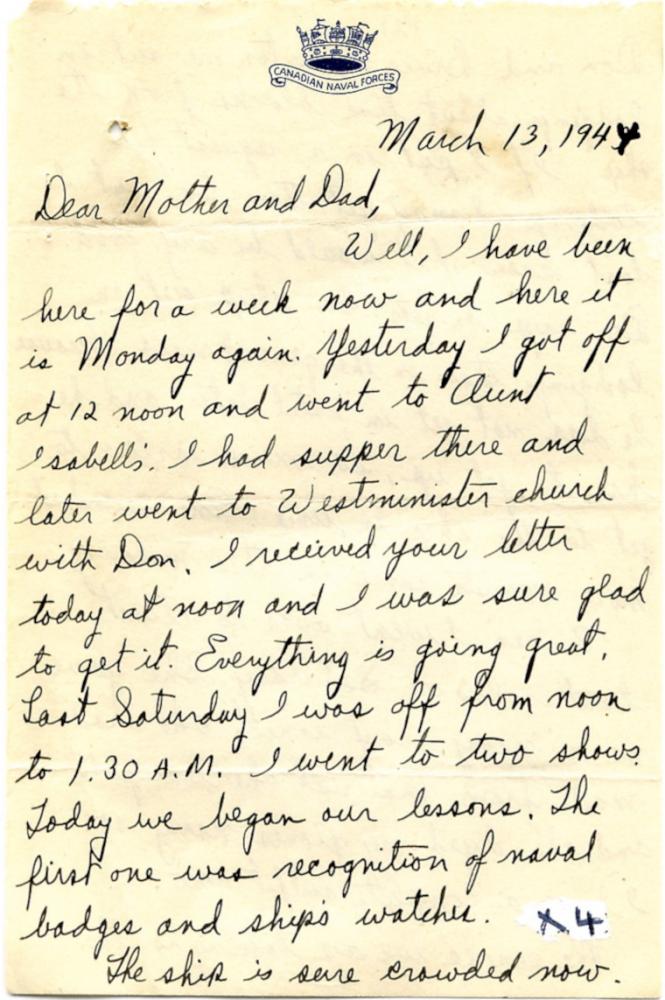 CANADIAN NAVAL FORCES
March 13, 1944
Dear Mother and Dad,
Well, I have been
here for a week now and here it
is Monday again. Yesterday I got off
at 12 noon and went to Aunt
Isabell's. I had supper there and
later went to Westminister church
with Don. I received your letter
today at noon and I was sure glad
to get it. Everything is going great.
Last Saturday I was off from noon
to 1.30 A.M. I went to two shows.
Today we began our lessons. The
first one was recognition of naval
badges and ship's watches.
X4
The ship is sure crowded now.